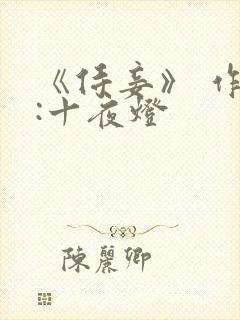 《侯妾》 作
:十夜燈
陳麗卿